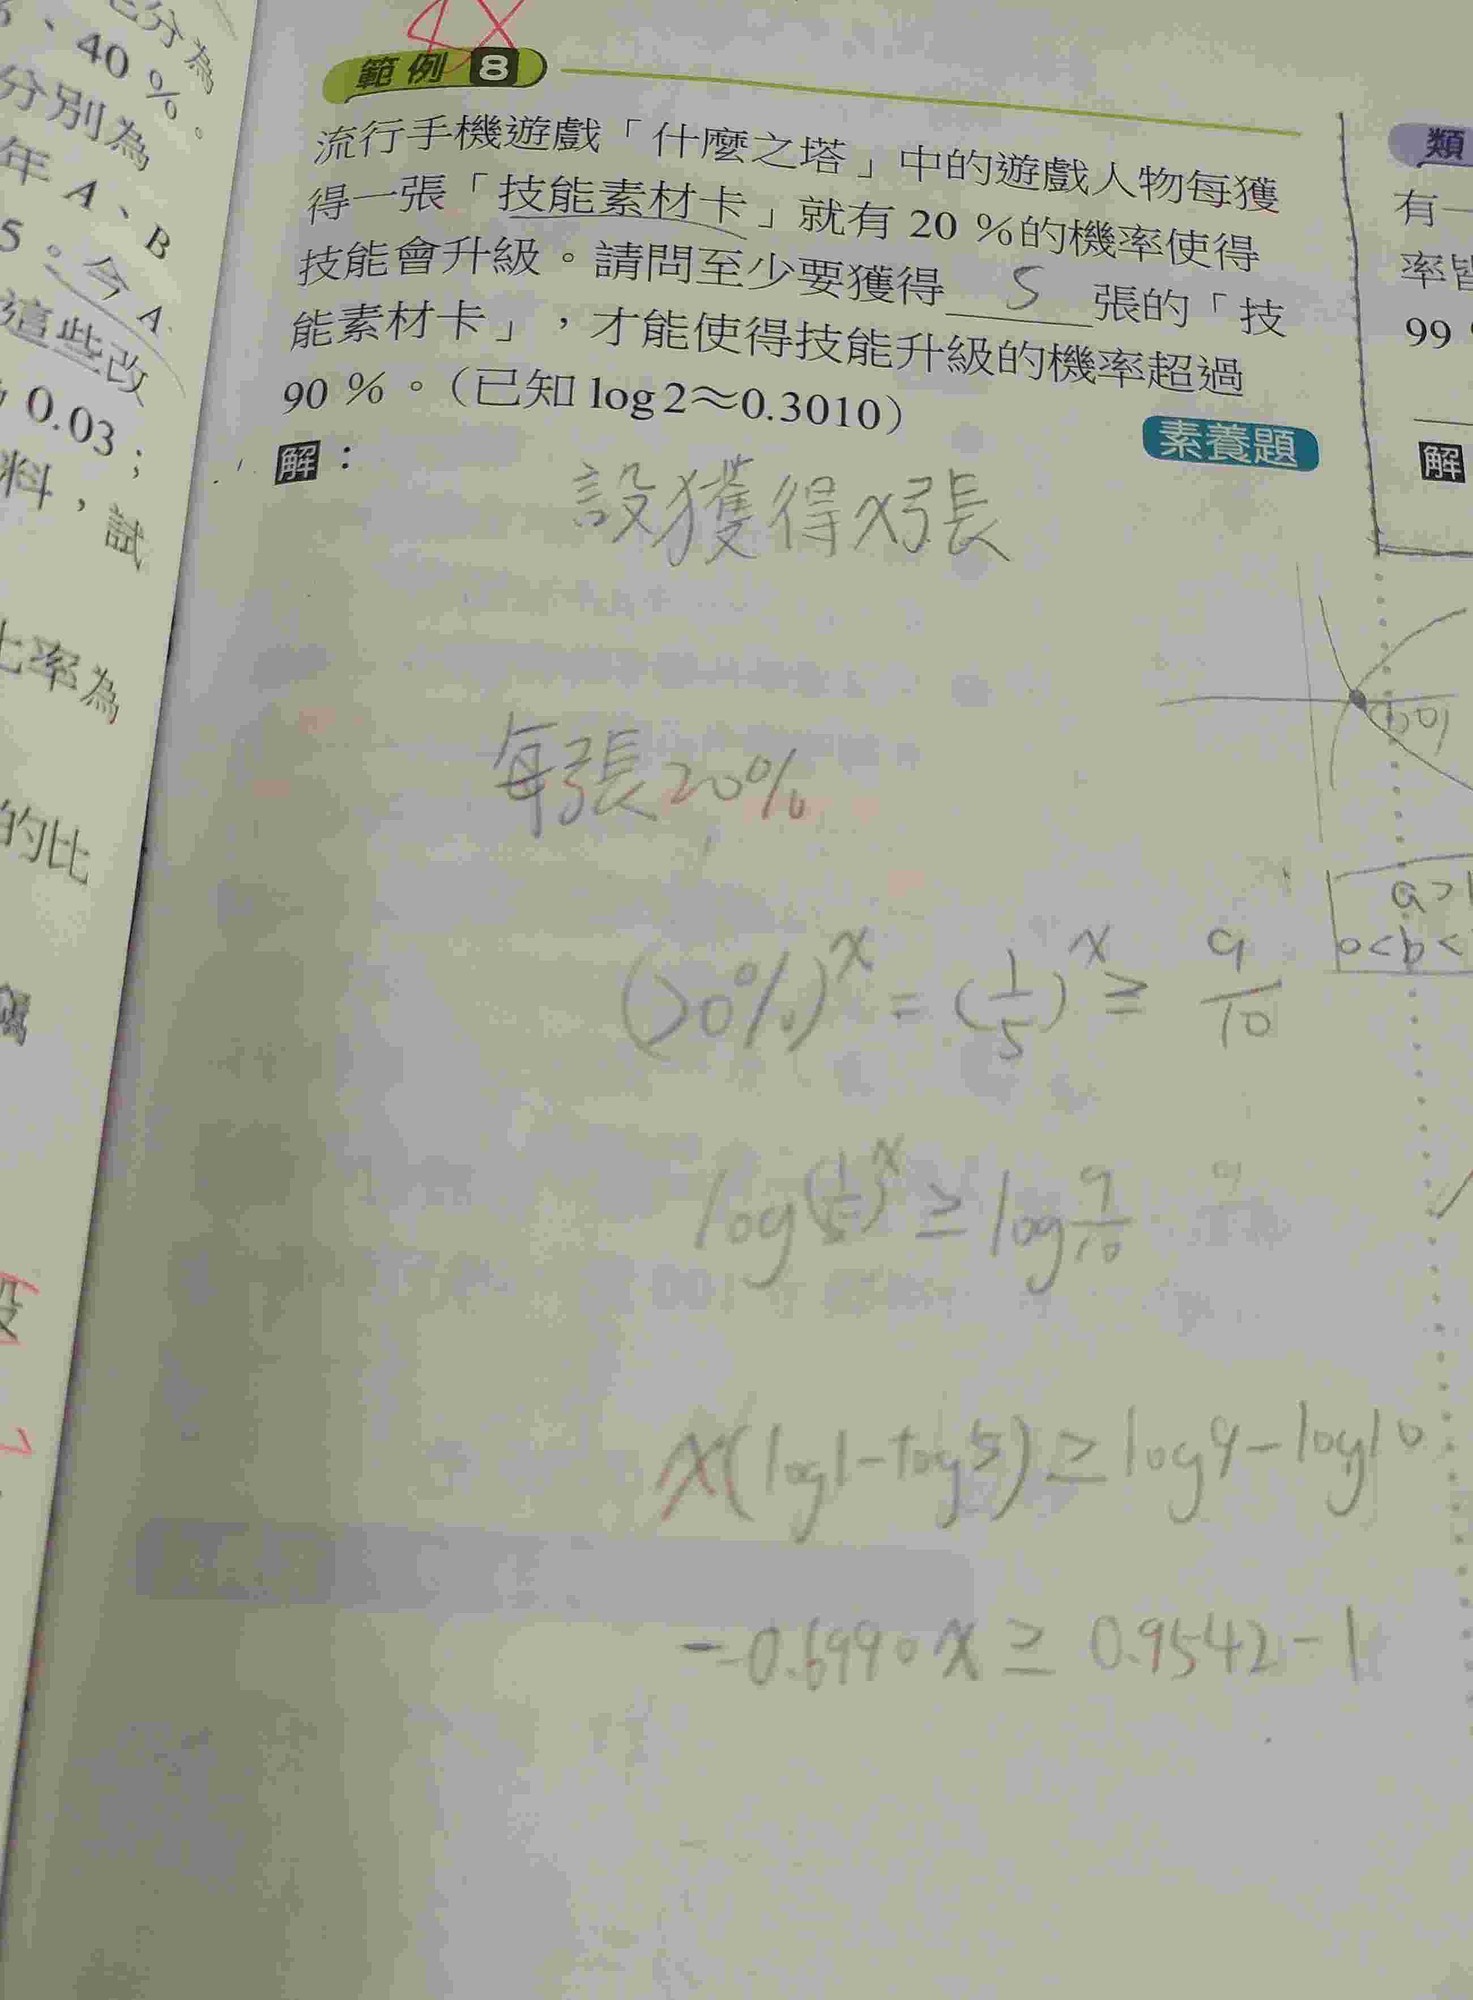 化分為
、40 %。
分別為
年 A、B
5。今 A
這些改
0.03；
料，試
比率為
的比
範例 8
流行手機遊戲「什麼之塔」中的遊戲人物每獲
得一張「技能素材卡」就有 20 %的機率使得
技能會升級。請問至少要獲得 5 張的「技
能素材卡」，才能使得技能升級的機率超過
90 %。（已知 log 2≈0.3010）
素養題
解：
設獲得x張
每張20%
(20%)^x = (1/5)^x ≥ 9/10
log(1/5)^x ≥ log 9/10
x(log1-log5) ≥ log9-log10
-0.6990x ≥ 0.9542-1
類
有一
率皆
99
解
a>1
0<b<